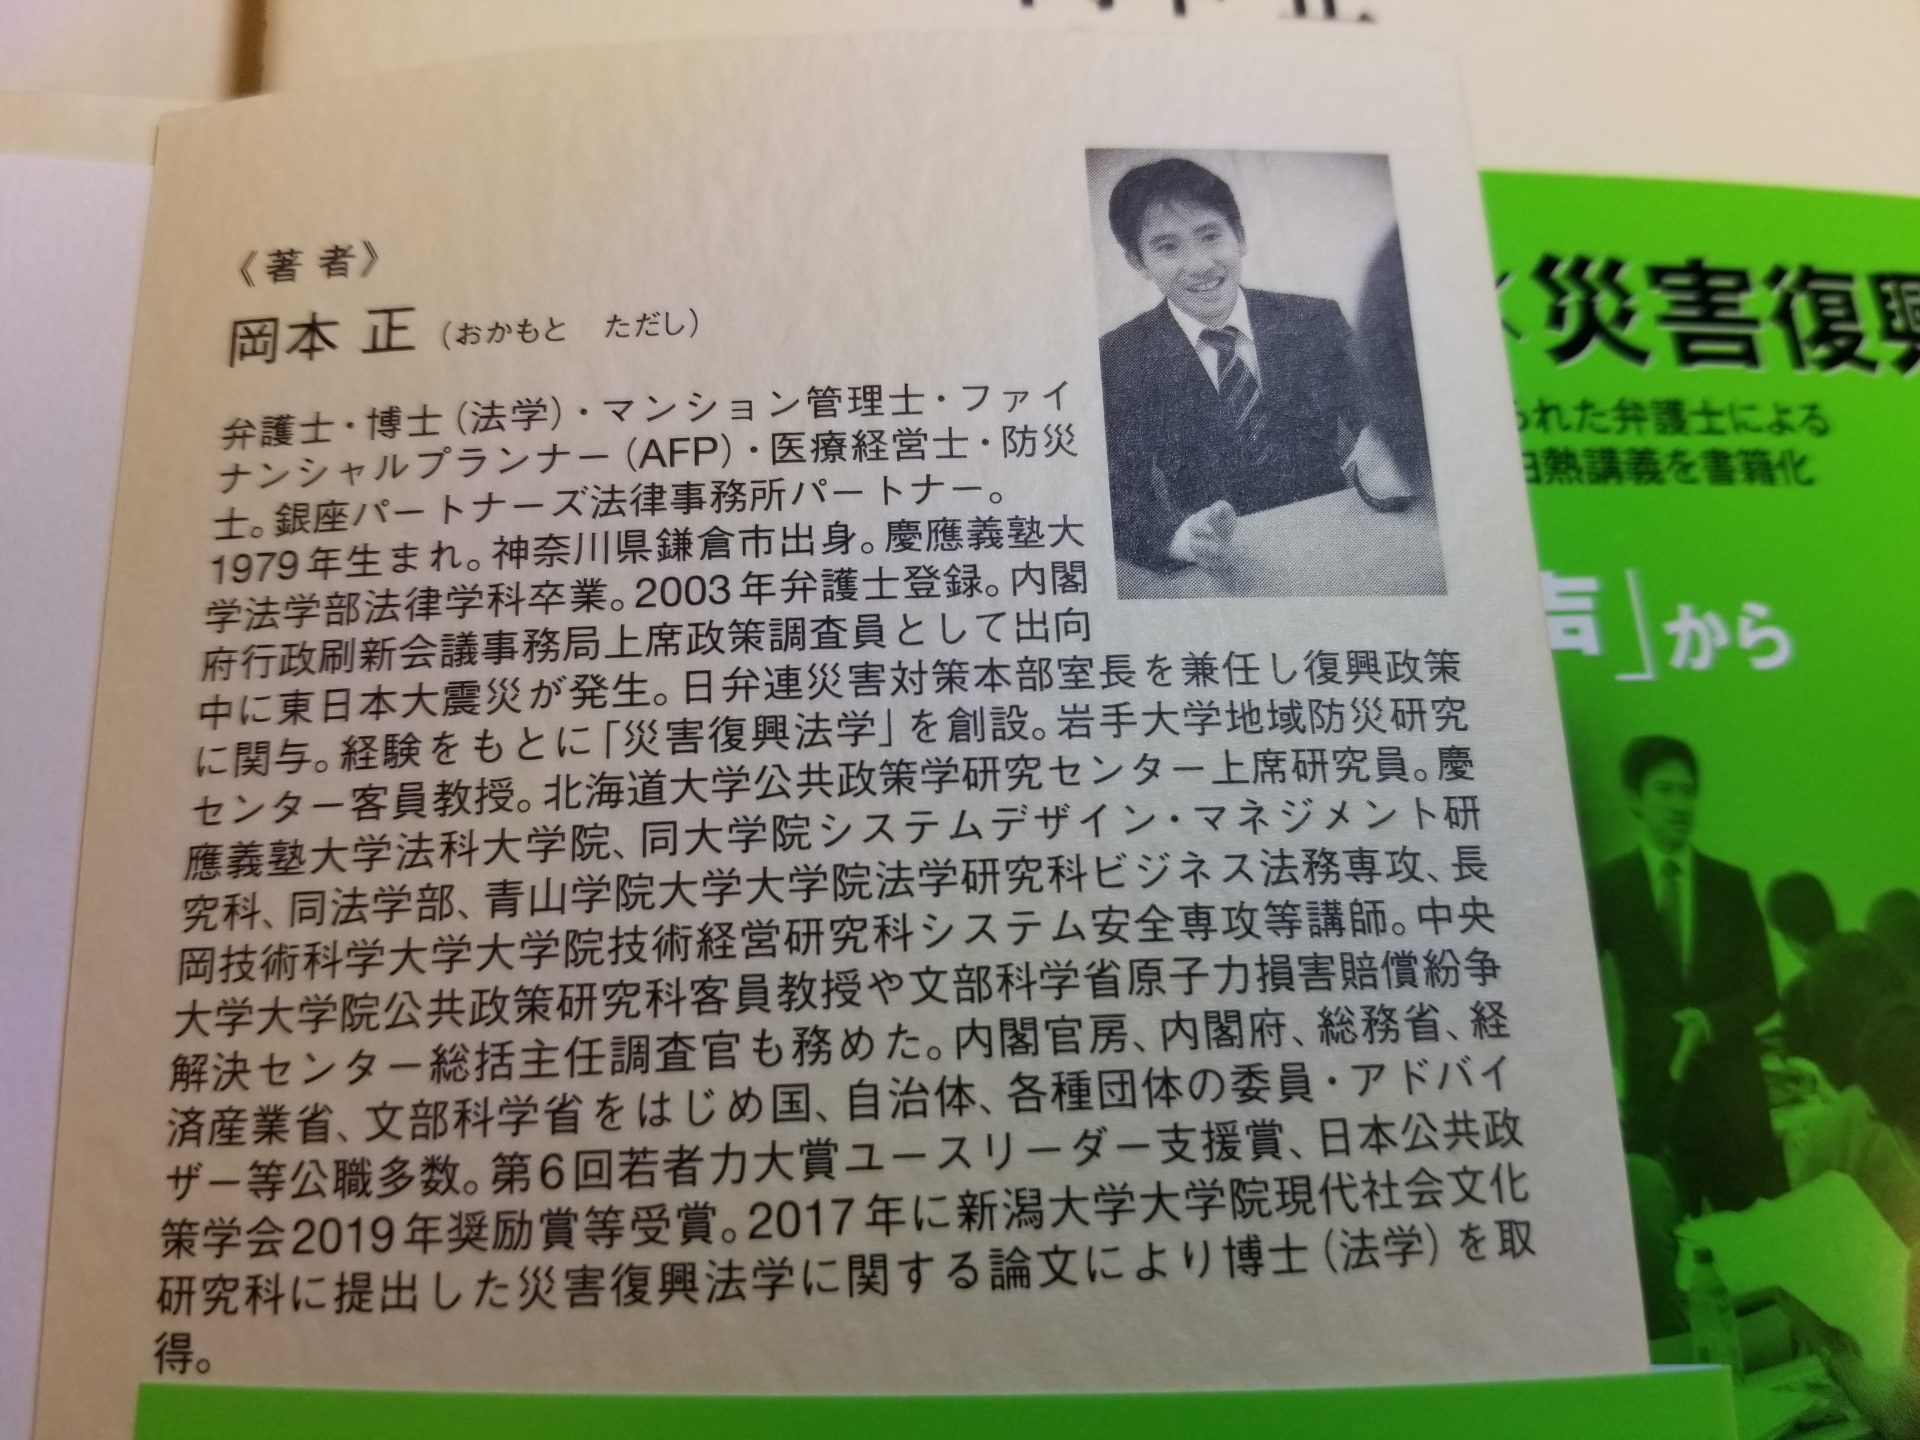 《著者》
岡本 正（おかもと　ただし）
弁護士・博士（法学）・マンション管理士・ファイ
ナンシャルプランナー（AFP）・医療経営士・防災
士。銀座パートナーズ法律事務所パートナー。
1979年生まれ。神奈川県鎌倉市出身。慶應義塾大
学法学部法律学科卒業。2003年弁護士登録。内閣
府行政刷新会議事務局上席政策調査員として出向
中に東日本大震災が発生。日弁連災害対策本部室長を兼任し復興政策
に関与。経験をもとに「災害復興法学」を創設。岩手大学地域防災研究
センター客員教授。北海道大学公共政策学研究センター上席研究員。慶
應義塾大学法科大学院、同大学院システムデザイン・マネジメント研
究科、同法学部、青山学院大学大学院法学研究科ビジネス法務専攻、長
岡技術科学大学大学院技術経営研究科システム安全専攻等講師。中央
大学大学院公共政策研究科客員教授や文部科学省原子力損害賠償紛争
解決センター総括主任調査官も務めた。内閣官房、内閣府、総務省、経
済産業省、文部科学省をはじめ国、自治体、各種団体の委員・アドバイ
ザー等公職多数。第6回若者力大賞ユースリーダー支援賞、日本公共政
策学会2019年奨励賞等受賞。2017年に新潟大学大学院現代社会文化
研究科に提出した災害復興法学に関する論文により博士（法学）を取
得。
災害復興
られた弁護士による
白熱講義を書籍化
声」から